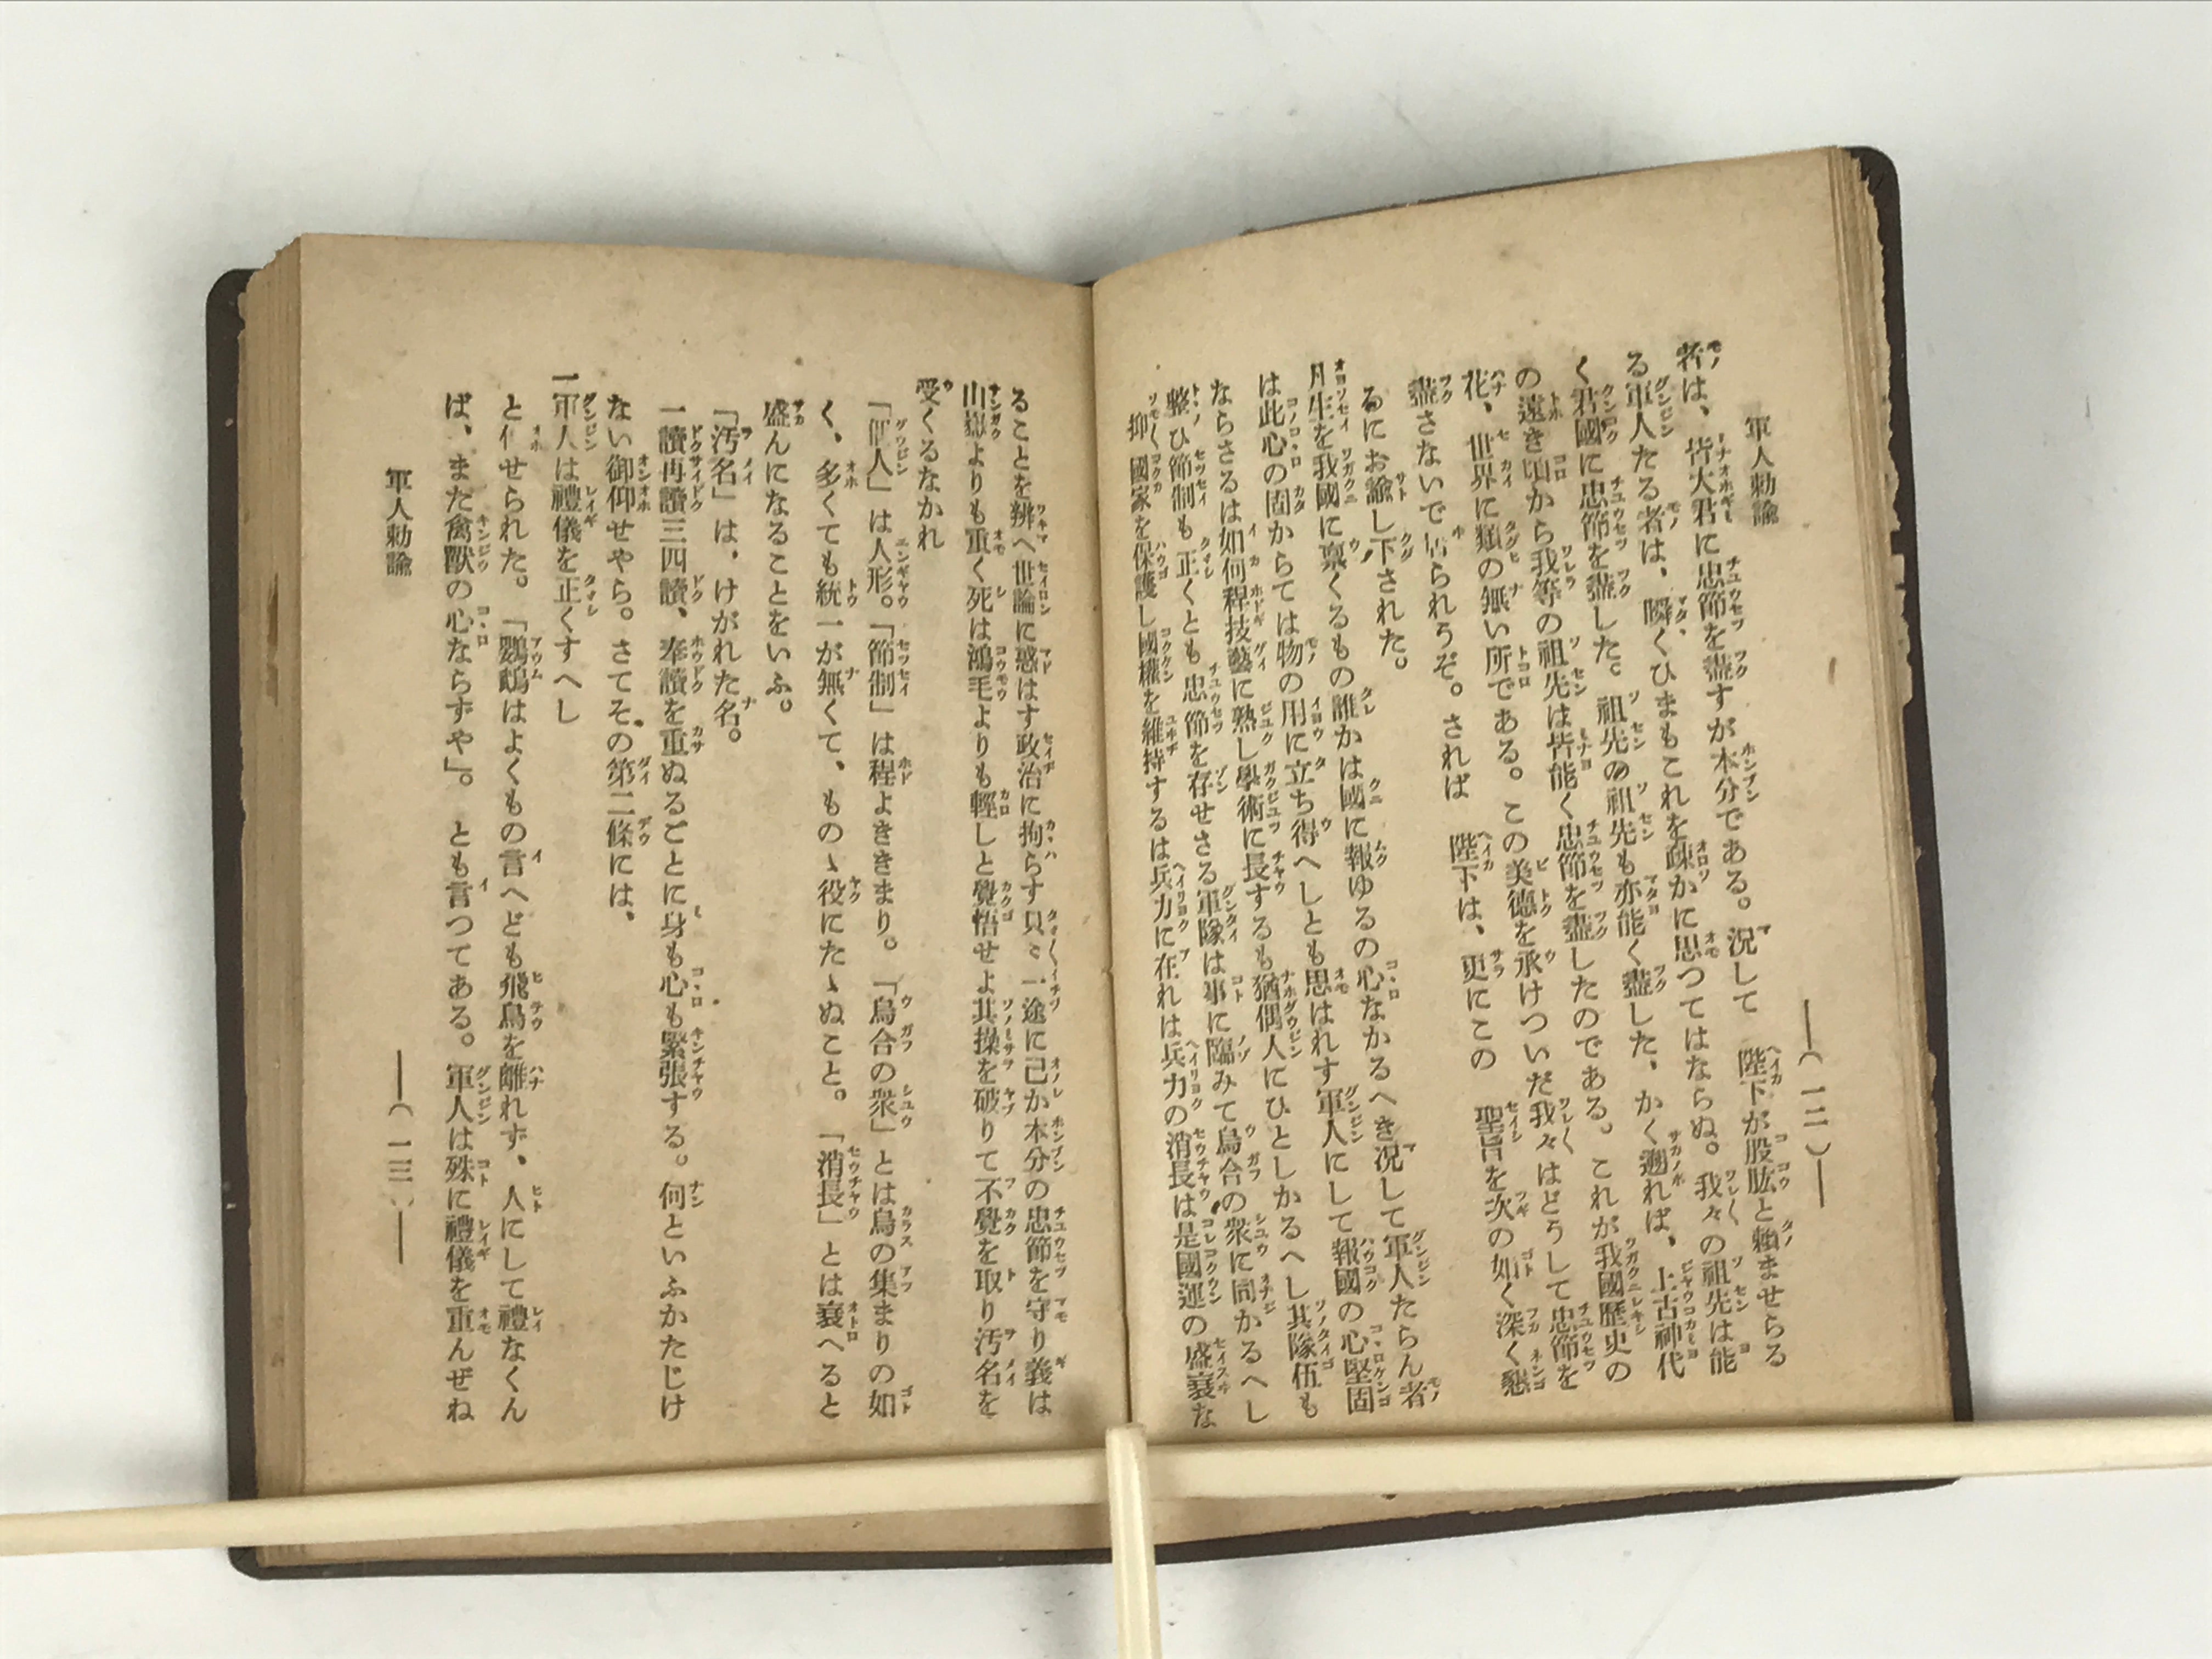 軍人勅諭
―(一二)―
者は、皆大君に忠節を盡すが本分である。況して　陛下が股肱と賴ませらる
る軍人たる者は、瞬くひまもこれを疎かに思つてはならぬ。我々の祖先は能
く君國に忠節を盡した。祖先の祖先も亦能く盡した、かく遡れば、上古神代
の遠き頃から我等の祖先は皆能く忠節を盡したのである。これが我國歷史の
花、世界に類の無い所である。この美德を承けついだ我々はどうして忠節を
盡さないで居られうぞ。されば　陛下は、更にこの　聖旨を次の如く深く懇
るにお諭し下された。
凡生を我國に禀くるもの誰かは國に報ゆるの心なかるへき況して軍人たらん者
は此心の固からては物の用に立ち得へしとも思はれす軍人にして報國の心堅固
ならさるは如何程技藝に熟し學術に長するも猶偶人にひとしかるへし其隊伍も
整ひ節制も正くとも忠節を存せさる軍隊は事に臨みて烏合の衆に同かるへし
抑國家を保護し國權を維持するは兵力に在れは兵力の消長は是國運の盛衰な
ることを辨へ世論に惑はす政治に拘らす只々一途に己か本分の忠節を守り義は
山嶽よりも重く死は鴻毛よりも輕しと覺悟せよ其操を破りて不覺を取り汚名を
受くるなかれ
「偶人」は人形。「節制」は程よききまり。「烏合の衆」とは烏の集まりの如
く、多くても統一が無くて、ものゝ役にたゝぬこと。「消長」とは衰へると
盛んになることをいふ。
「汚名」は、けがれた名。
一讀再讀三四讀、奉讀を重ぬるごとに身も心も緊張する。何といふかたじけ
ない御仰せやら。さてその第二條には、
一軍人は禮儀を正くすへし
と仰せられた。「鸚鵡はよくもの言へども飛鳥を離れず、人にして禮なくん
ば、また禽獸の心ならずや」。とも言つてある。軍人は殊に禮儀を重んぜね
軍人勅諭
―(一三)―